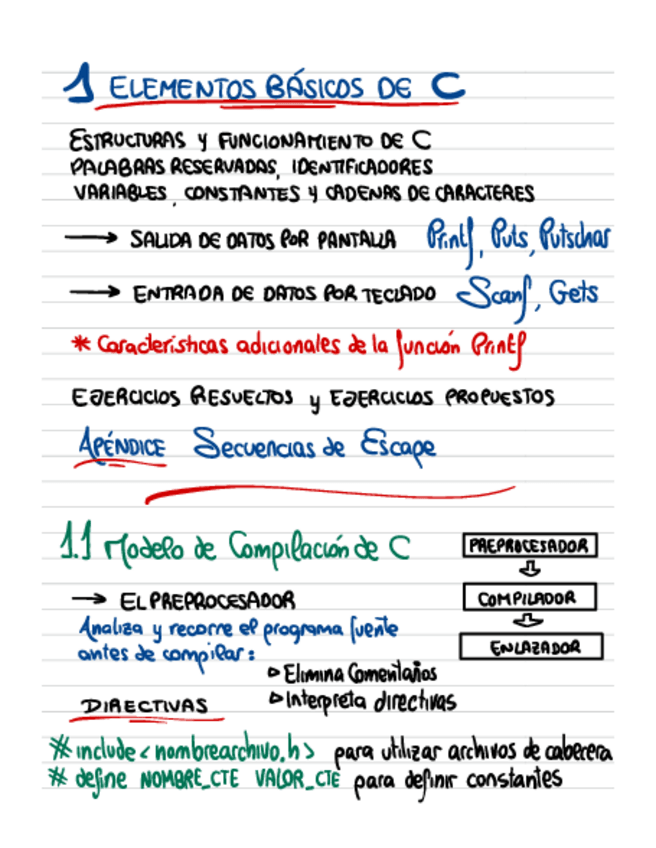 1 ELEMENTOS BÁSICOS DE C
ESTRUCTURAS Y FUNCIONAMIENTO DE C
PALABRAS RESERVADAS, IDENTIFICADORES
VARIABLES, CONSTANTES Y CADENAS DE CARACTERES
→ SALIDA DE DATOS POR PANTALLA Printf, Puts, Putschar
→ ENTRADA DE DATOS POR TECLADO Scanf, Gets
* Características adicionales de la función Printf
EJERCICIOS RESUELTOS y EJERCICIOS PROPUESTOS
APÉNDICE Secuencias de Escape
1.1 Modelo de Compilación de C
PREPROCESADOR
COMPILADOR
ENLAZADOR
→ EL PREPROCESADOR
Analiza y recorre el programa fuente
antes de compilar:
▷ Elimina Comentarios
▷ Interpreta directivas
DIRECTIVAS
# include < nombrearchivo.h > para utilizar archivos de cabecera
# define NOMBRE_CTE VALOR_CTE para definir constantes